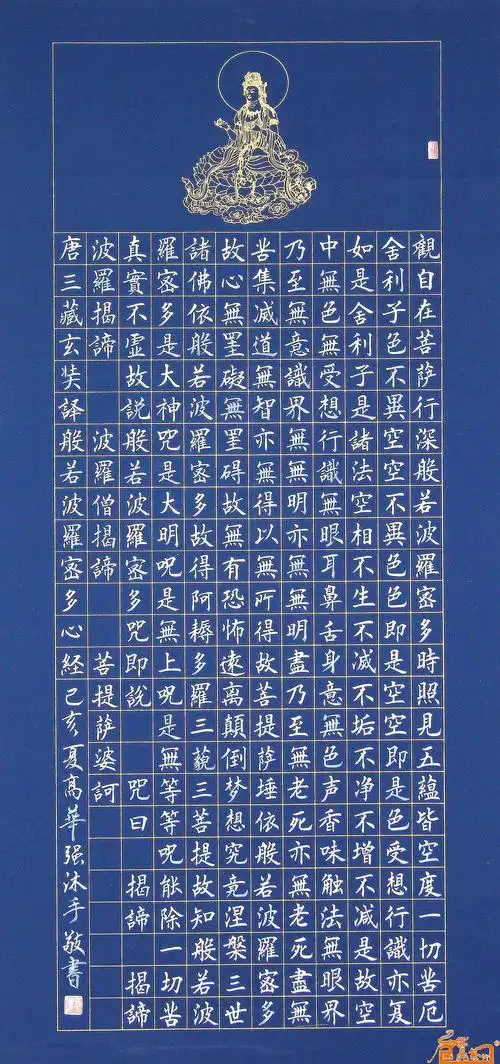 觀自在菩薩行深般若波羅密多時照見五蘊皆空度一切苦厄
舍利子色不異空空不異色色即是空空即是色受想行識亦复
如是舍利子是諸法空相不生不滅不垢不净不增不减是故空
中無色無受想行識無眼耳鼻舌身意無色声香味触法無眼界
乃至無意識界無無明亦無無明盡乃至無老死亦無老死盡無
苦集滅道無智亦無得以無所得故菩提萨埵依般若波羅密多
故心無罣礙無罣碍故無有恐怖遠离顛倒梦想究竟涅槃三世
諸佛依般若波羅密多故得阿耨多羅三藐三菩提故知般若波
羅密多是大神咒是大明咒是無上咒是無等等咒能除一切苦
真實不虛故説般若波羅密多咒即説 咒曰 揭諦 揭諦
波羅揭諦 波羅僧揭諦 菩提萨婆訶
唐三藏玄奘譯般若波羅密多心經己亥夏高華强沐手敬書